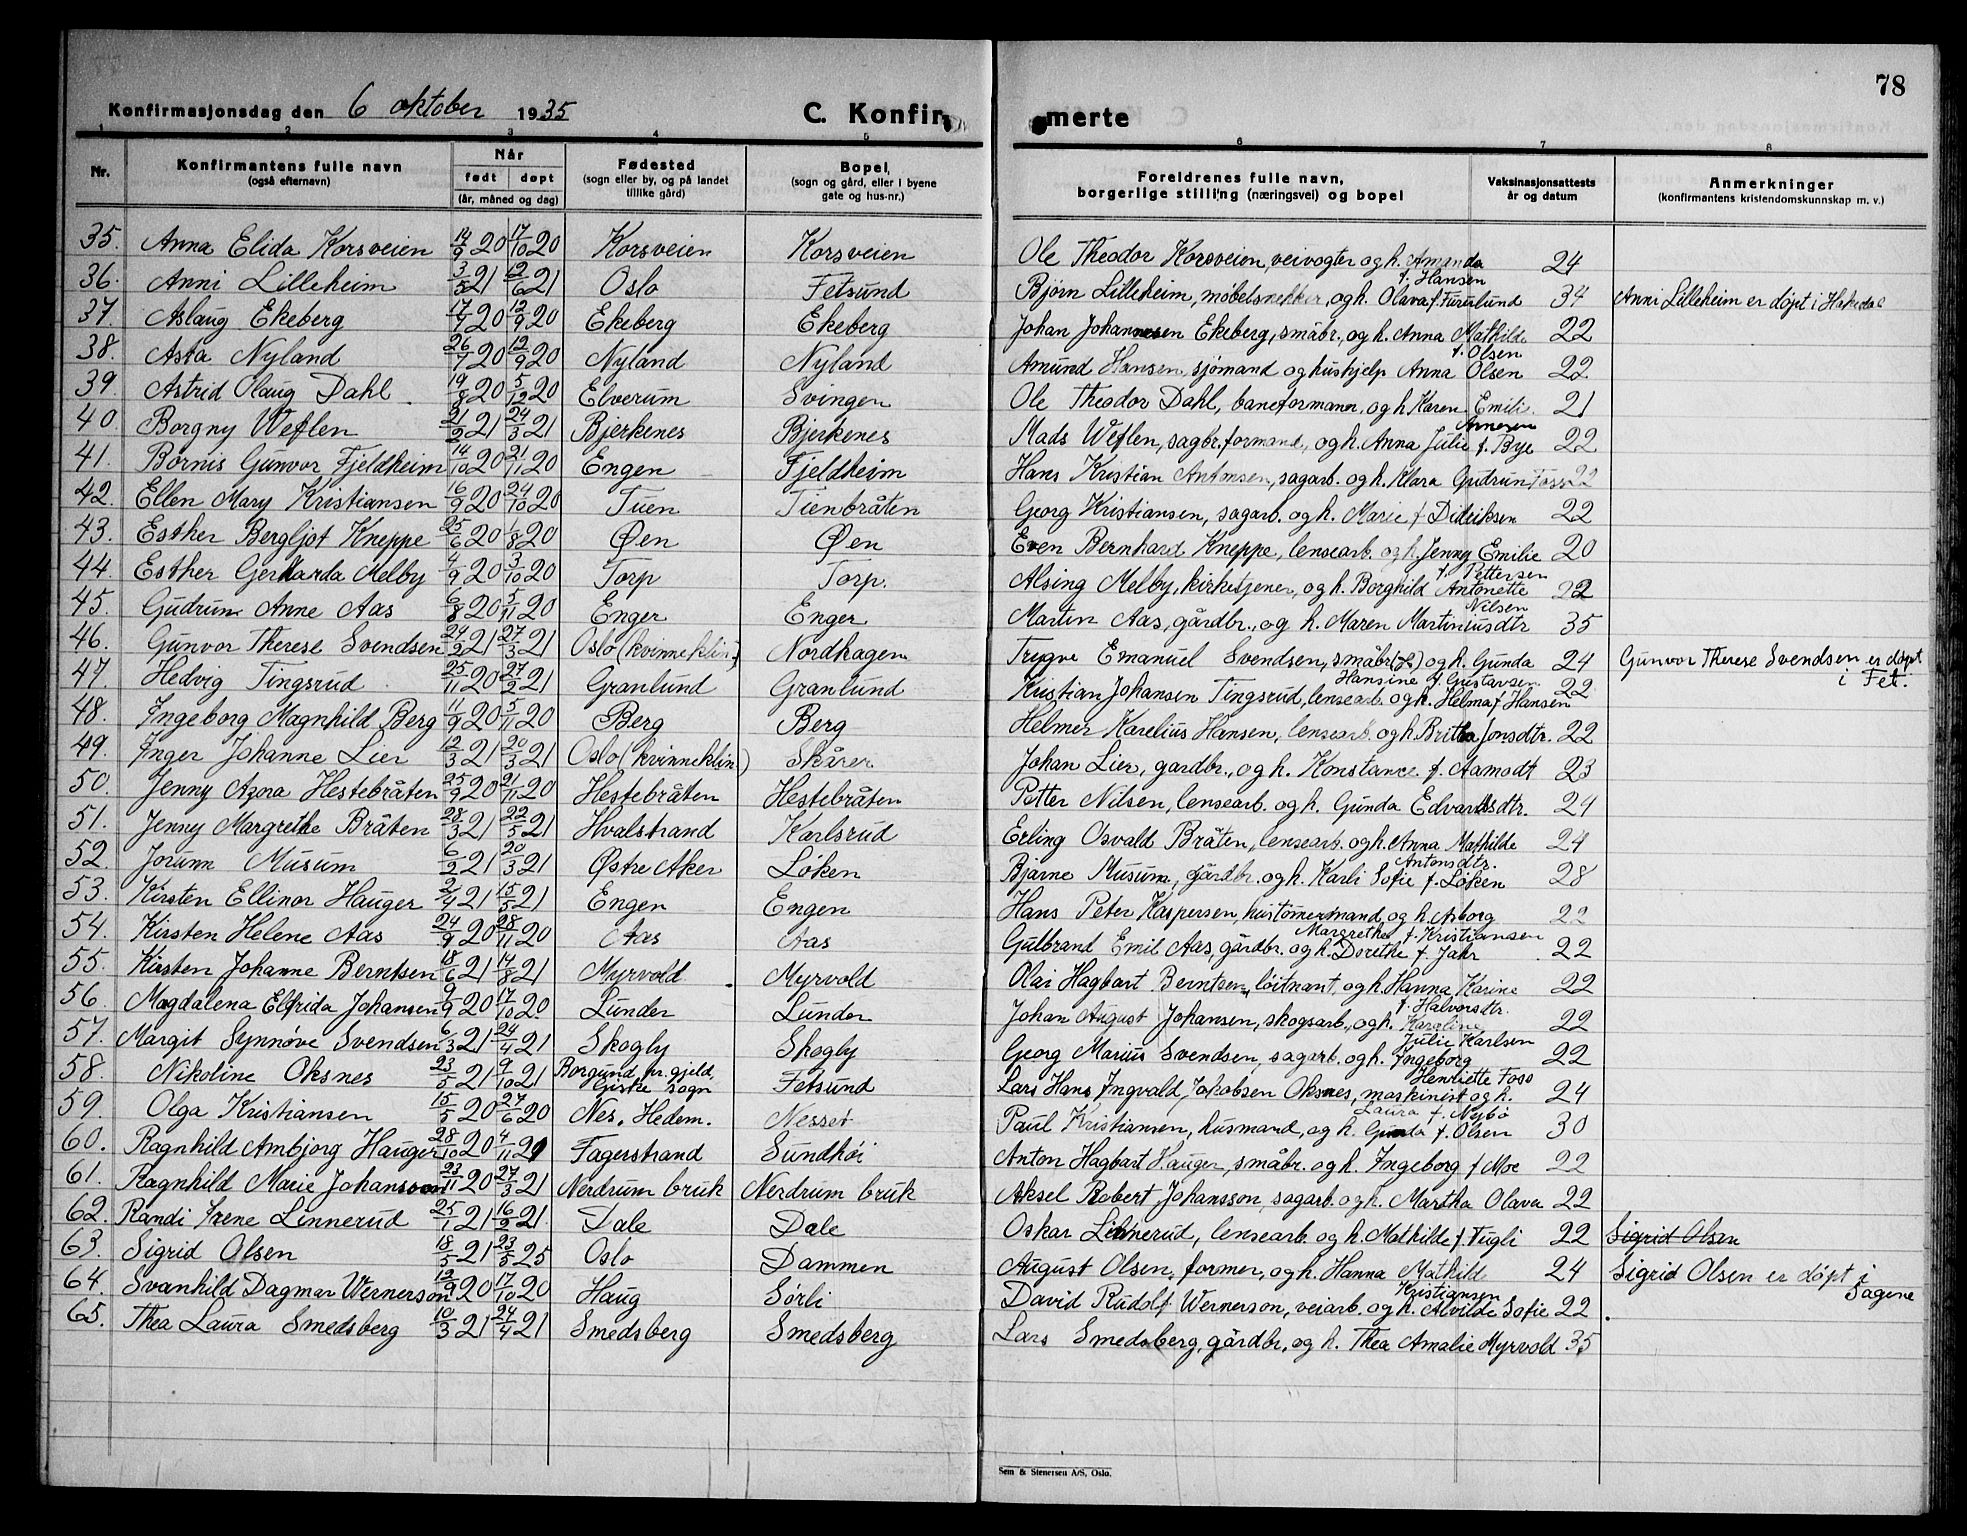 78
Konfirmasjonsdag den 6 oktober 1935 C. Konfir merte
1 2 3 4 5 6 7 8
Nr. Konfirmantens fulle navn (også efternavn) Når født døpt (år, måned og dag) Fødested (sogn eller by, og på landet tillike gård) Bopel, (sogn og gård, eller i byene gate og hus-nr.) Foreldrenes fulle navn, borgerlige stilling (næringsvei) og bopel Vaksinasjonsattests år og datum Anmerkninger (konfirmantens kristendomskunnskap m. v.)
35. Anna Elida Korsveien 14/9 20 17/10 20 Korsveien Korsveien Ole Theodor Korsveien, veivogter og h. Amanda f. Hansen 24
36. Anni Lilleheim 3/5 21 12/6 21 Oslo Fetsund Bjørn Lilleheim, møbelsnekker, og h. Olava f. Furulund 34 Anni Lilleheim er døpt i Hakedal
37. Aslaug Ekeberg 17/7 20 12/9 20 Ekeberg Ekeberg Johan Johannesen Ekeberg, småbr., og h. Anna Mathilde f. Olsen 22
38. Asta Nyland 26/7 20 12/9 20 Nyland Nyland Amund Hansen, sjømand og hushjelp Anna Olsen 22
39. Astrid Olaug Dahl 19/8 20 5/12 20 Elverum Svingen Ole Theodor Dahl, baneformann, og h. Karen Emilie Arnesen 21
40. Borgny Weflen 21/2 21 24/3 21 Bjerkenes Bjerkenes Mads Weflen, sagbr. formand, og h. Anna Julie f. Bye 22
41. Bornis Gunvor Fjeldheim 14/10 20 21/11 20 Engen Fjeldheim Hans Kristian Antonsen, sagarb. og h. Klara Gudrun Foss 22
42. Ellen Mary Kristiansen 16/9 20 24/10 20 Tuen Tienbråten Georg Kristiansen, sagarb. og h. Marie f. Didriksen 22
43. Esther Bergljot Kneppe 25/6 20 1/8 20 Øen Øen Even Bernhard Kneppe, lensearb. og h. Jenny Emilie f. Pettersen 20
44. Esther Gerharda Melby 4/9 20 3/10 20 Torp Torp. Alsing Melby, kirketjener, og h. Borghild Antonette Nilsen 22
45. Gudrun Anne Aas 6/8 20 5/11 20 Enger Enger Martin Aas, gårdbr., og h. Maren Martiniusdtr 35
46. Gunvor Therese Svendsen 24/2 21 27/3 21 Oslo (kvinneklin.) Nordhagen Trygve Emanuel Svendsen, småbr. og h. Gunda Hansine f. Gustavsen 24 Gunvor Therese Svendsen er døpt i Fet.
47. Hedvig Tingsrud 25/11 20 27/2 21 Granlund Granlund Kristian Johansen Tingsrud, lensearb. og h. Helma f. Hansen 22
48. Ingeborg Magnhild Berg 11/9 20 5/11 20 Berg Berg Helmer Karelius Hansen, lensearb. og h. Britha Jonsdtr. 22
49. Inger Johanne Lier 12/3 21 20/3 21 Oslo (kvinneklin.) Skårer Johan Lier, gardbr., og h. Konstance f. Aamodt 23
50. Jenny Agna Hestebråten 25/9 20 21/11 20 Hestebråten Hestebråten Petter Nilsen, lensearb. og h. Gunda Edvardsdtr. 24
51. Jenny Margrethe Bråten 28/3 21 22/5 21 Hvalstrand Karlsrud Erling Osvald Bråten, lensearb. og h. Anna Mathilde Antonsdtr. 24
52. Jorunn Musum 6/2 21 20/3 21 Østre Aker Løken Bjarne Musum, gårdbr. og h. Karli Sofie f. Løken 28
53. Kirsten Ellinor Hauger 2/4 21 15/5 21 Engen Engen Hans Peter Kaspersen, hustømermand, og h. Asborg Margrethe f. Kristiansen 22
54. Kirsten Helene Aas 24/9 20 28/11 20 Aas Aas Gulbrand Emil Aas, gårdbr. og h. Dorethe f. Jahr 22
55. Kirsten Johanne Berntsen 18/6 21 14/8 21 Myrvold Myrvold Olai Hagbart Berntsen, løitnant, og h. Hanna Karine f. Halvorsdtr. 22
56. Magdalena Elfrida Johansen 9/9 20 17/10 20 Lunder Lunder Johan August Johansen, skogsarb., og h. Karoline Julie Karlsen 22
57. Margit Synnøve Svendsen 6/3 21 24/4 21 Skogly Skogly Georg Marius Svendsen, sagarb. og h. Ingeborg Henriette Foss 22
58. Nikoline Oksnes 23/5 21 9/10 21 Borgund pr. gjeld, Giske sogn Fetsund Lars Hans Ingvald Jakobsen Oksnes, maskinist og h. Laura f. Nybø 24
59. Olga Kristiansen 15/5 20 27/6 20 Nes, Hedem. Nesset Paul Kristiansen, husmand, og h. Gunda f. Olsen 30
60. Ragnhild Ambjørg Hauger 28/10 20 4/11 20 Fagerstrand Sundhöi Anton Hagbart Hauger, småbr. og h. Ingeborg f Moe 22
61. Ragnhild Marie Johansson 23/11 20 27/3 21 Nerdrum bruk Nerdrum bruk Aksel Robert Johansson, sagarb. og h. Martha Olava 22
62. Randi Irene Linnerud 25/1 21 16/2 21 Dale Dale Oskar Linnerud, lensearb. og h. Mathilde f. Fugli 22 Sigrid Olsen
63. Sigrid Olsen 18/5 21 23/5 25 Oslo Dammen August Olsen, former, og h. Hanna Mathild Kristiansen 24 Sigrid Olsen er døpt i Sagene
64. Svanhild Dagmar Wernerson 12/9 20 17/10 20 Haug Sørli David Rudolf Wernerson, veiarb. og h. Alvilde Sofie 22
65. Thea Laura Smedsberg 10/3 21 24/4 21 Smedsberg Smedsberg Lars Smedsberg, gårdbr., og h. Thea Amalie Myrvold 35
Sem & Stenersen A/S, Oslo.